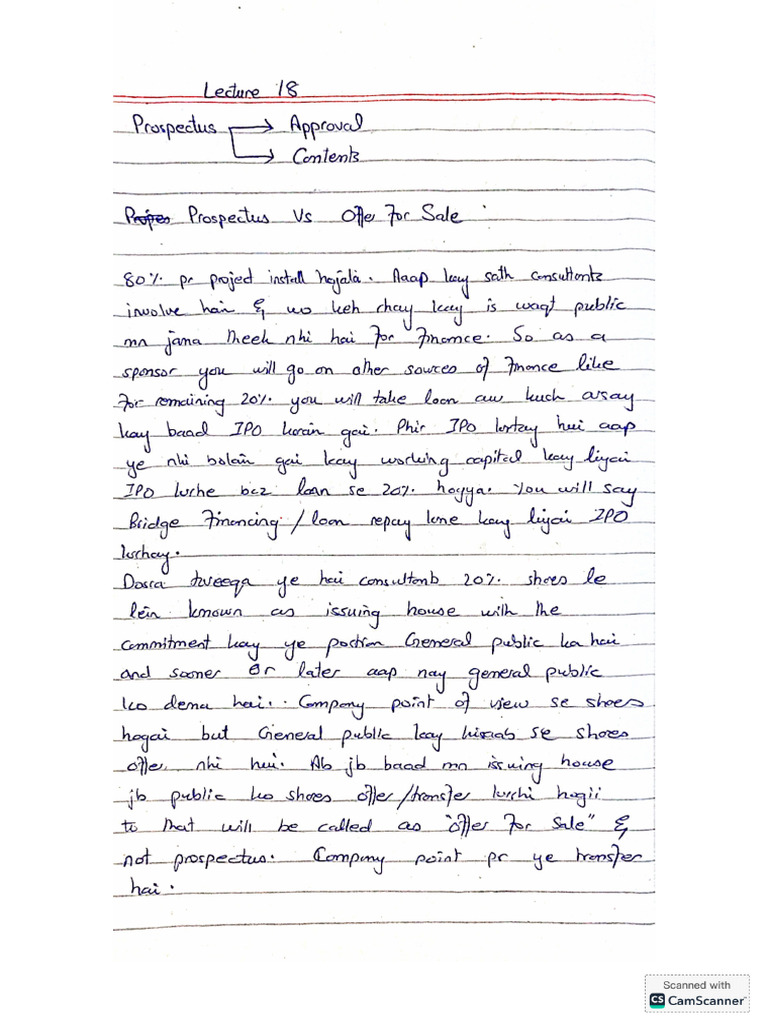 Lecture 18
Prospectus → Approval
→ Contents
Prospectus Vs Offer For Sale
80% pr project install hogala. Aaap kay sath consultants
involve hain & wo keh rhay kay is waqt public
mn jana theek nhi hai for finance. So as a
sponsor you will go on other sources of finance like
for remaining 20% you will take loan aur kuch arsay
kay baad IPO karain gai. Phir IPO krtay hui aap
ye nhi bolain gai kay working capital kay liyai
IPO krrhe bcz loan se 20% hogya. You will say
Bridge Financing / loan repay krne kay liyai IPO
krrhay.
Dosra tareeqa ye hai consultants 20% shares le
lein known as issuing house with the
commitment kay ye portion General public ka hai
and sooner or later aap nay general public
ko dena hai. Company point of view se shares
hogai but General public kay hisaab se shares
offer nhi hui. Ab jb baad mn issuing house
jb public ko shares offer/transfer krrhi hogii
to that will be called as "offer for Sale" &
not prospectus. Company point pr ye transfer
hai.
Scanned with
CS CamScanner